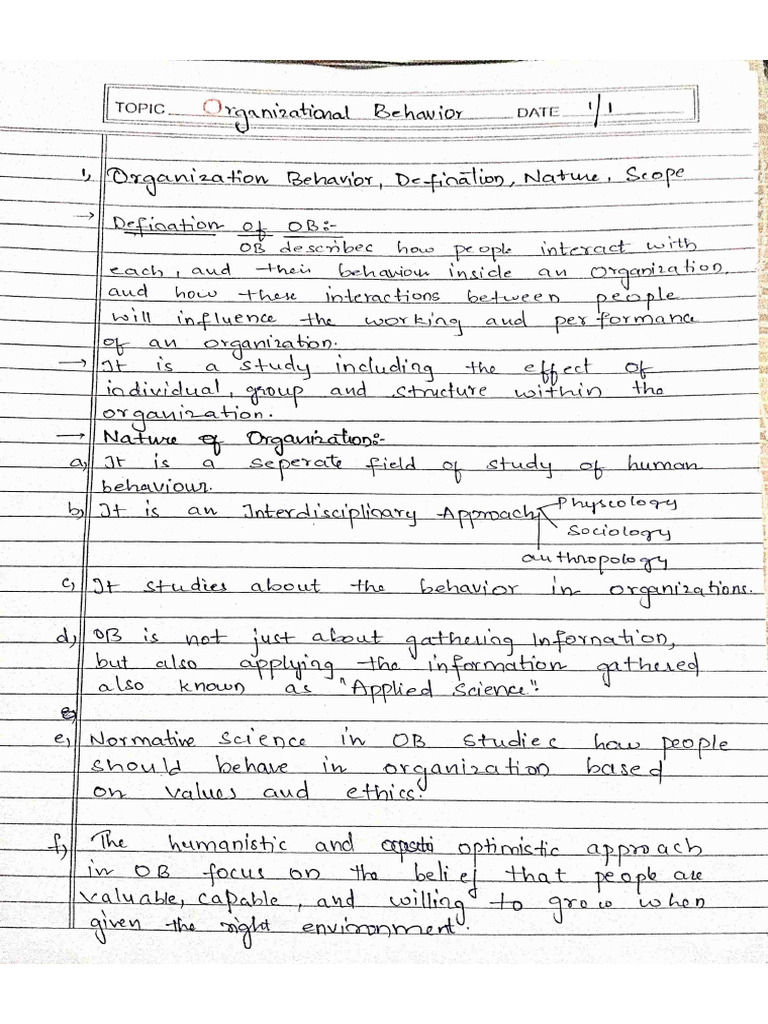 TOPIC Organizational Behavior DATE 1/1
1) Organization Behavior, Defination, Nature, Scope
→ Defination of OB:-
OB describec how people interact with
each, and their behaviour inside an Organization,
and how these interactions between people
will influence the working and performance
of an organization.
→ It is a study including the effect of
individual, group and structure within the
organization.
→ Nature of Organization:-
a) It is a seperate field of study of human
behaviour.
b) It is an Interdisciplinary Approach
Physcology
Sociology
authropology
c) It studies about the behavior in organizations.
d) OB is not just about gathering Information,
but also applying the information gathered
also known as "Applied Science".
e) Normative Science in OB studiec how people
should behave in organization based
on values and ethics.
f) The humanistic and optimistic approach
in OB focus on the belief that people are
valuable, capable, and willing to grow when
given the right environment.